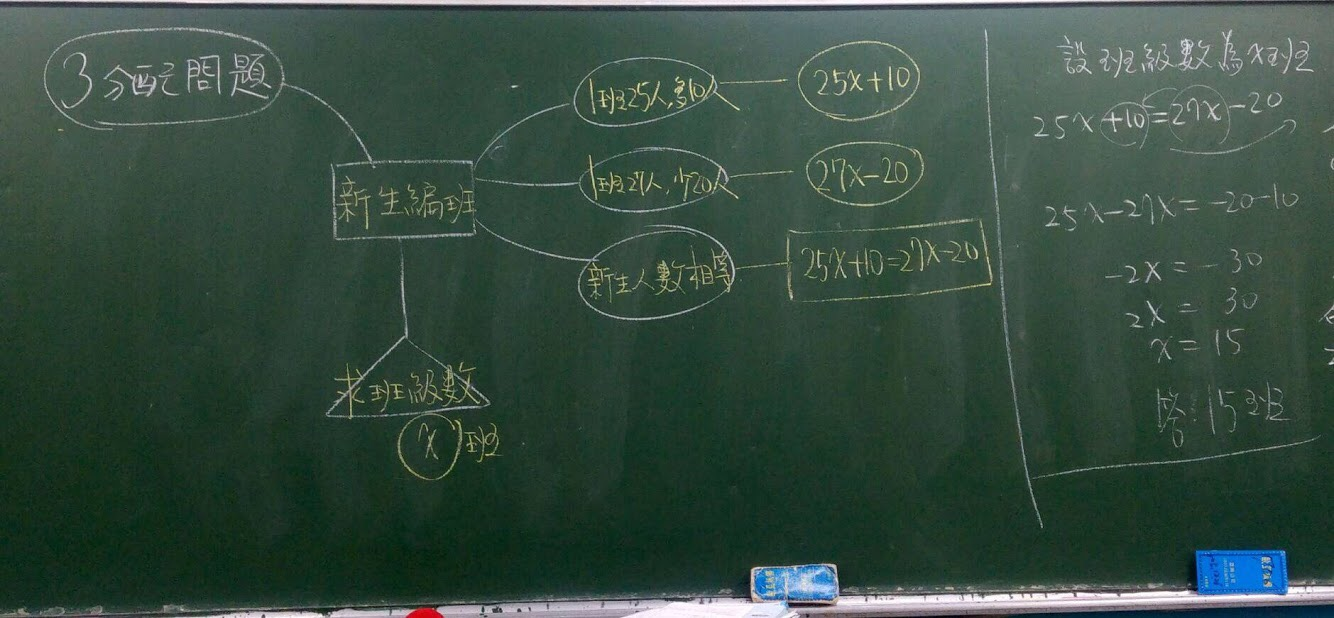 3分配問題
新生編班
1班25人,多10人
25x+10
1班27人,少20人
27x-20
新生人數相等
25x+10=27x-20
求班級數
x班
設班級數為x班
25x+10=27x-20
25x-27x=-20-10
-2x=-30
2x=30
x=15
答:15班